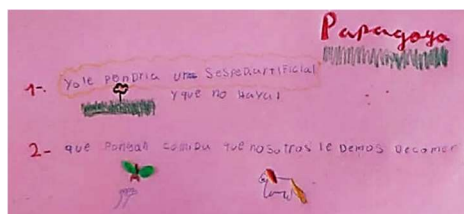 Papagoyo
1-. Yo le pondria un Sesped artificial
y que no Haya
2- que pongan comida que nosotros le Demos Decomer